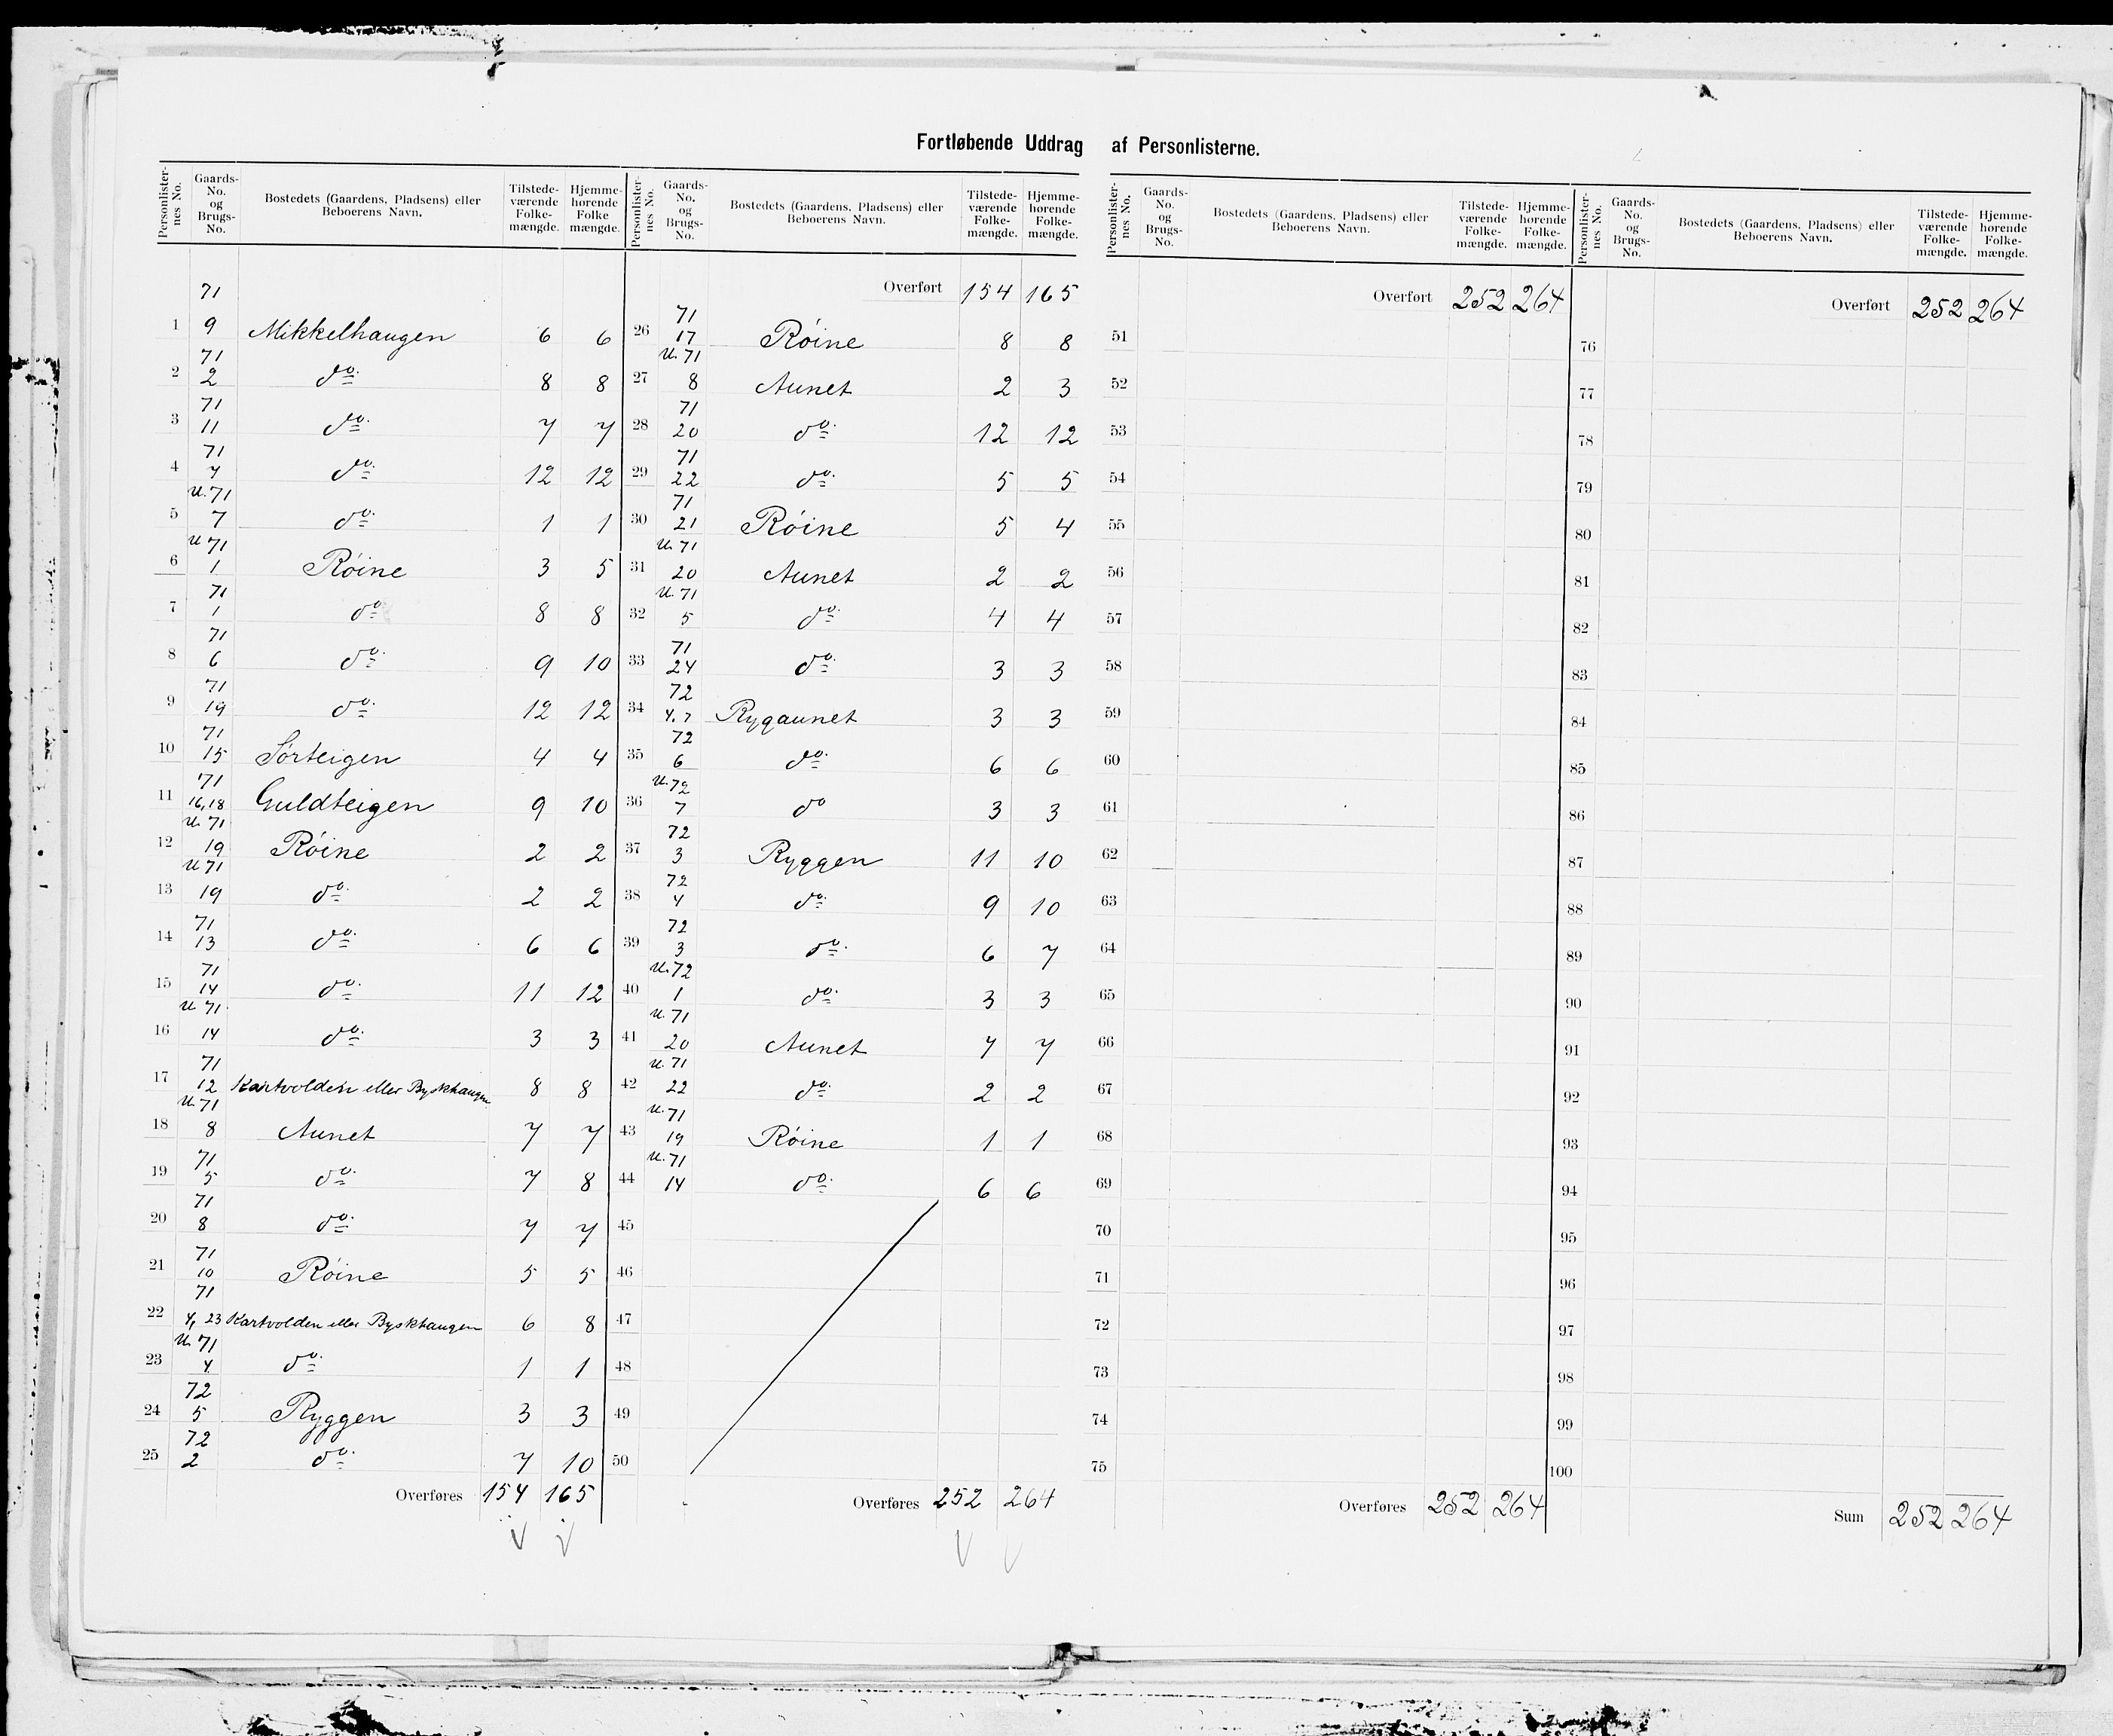 Fortløbende Uddrag af Personlisterne.
Personlister-nes No. | Gaards-No. og Brugs-No. | Bostedets (Gaardens, Pladsens) eller Beboerens Navn. | Tilstede-værende Folke-mængde. | Hjemme-hørende Folke mængde.
1 | 71 9 | Mikkelhaugen | 6 | 6
2 | 71 2 | do. | 8 | 8
3 | 71 11 | do. | 7 | 7
4 | 71 4 | do. | 12 | 12
5 | U. 71 7 | do. | 1 | 1
6 | U 71 1 | Röine | 3 | 5
7 | 71 1 | do | 8 | 8
8 | 71 6 | do. | 9 | 10
9 | 71 19 | do. | 12 | 12
10 | 71 15 | Sörteigen | 4 | 4
11 | 71 16,18 | Guldteigen | 9 | 10
12 | U. 71 19 | Röine | 2 | 2
13 | U 71 19 | do. | 2 | 2
14 | 71 13 | do. | 6 | 6
15 | 71 14 | do. | 11 | 12
16 | U 71 14 | do. | 3 | 3
17 | 71 12 | Kartvolden eller Byskhaugen | 8 | 8
18 | U. 71 8 | Aunet | 7 | 7
19 | 71 5 | do. | 7 | 8
20 | 71 8 | do. | 7 | 7
21 | 71 10 | Röine | 5 | 5
22 | 71 4, 23 | Kartvolden eller Byskhaugen | 6 | 8
23 | U. 71 4 | do. | 1 | 1
24 | 72 5 | Ryggen | 3 | 3
25 | 72 2 | do. | 7 | 10
Overføres 154 165
Personlister-nes No. | Gaards-No. og Brugs-No. | Bostedets (Gaardens, Pladsens) eller Beboerens Navn. | Tilstede-værende Folke-mængde. | Hjemme-hørende Folke-mængde.
Overført 154 165
26 | 71 17 | Röine | 8 | 8
27 | U. 71 8 | Aunet | 2 | 3
28 | 71 20 | do. | 12 | 12
29 | 71 22 | do. | 5 | 5
30 | 71 21 | Röine | 5 | 4
31 | U. 71 20 | Aunet | 2 | 2
32 | U. 71 5 | do. | 4 | 4
33 | 71 24 | do. | 3 | 3
34 | 72 4,7 | Rygaunet | 3 | 3
35 | 72 6 | do. | 6 | 6
36 | U. 72 7 | do | 3 | 3
37 | 72 3 | Ryggen | 11 | 10
38 | 72 4 | do. | 9 | 10
39 | 72 3 | do. | 6 | 7
40 | U. 72 1 | do. | 3 | 3
41 | U. 71 20 | Aunet | 7 | 7
42 | U. 71 22 | do. | 2 | 2
43 | U. 71 19 | Röine | 1 | 1
44 | U. 71 14 | do. | 6 | 6
45
46
47
48
49
50
Overføres 252 264
Personlister-nes No. | Gaards-No. og Brugs-No. | Bostedets (Gaardens, Pladsens) eller Beboerens Navn. | Tilstede-værende Folke-mængde. | Hjemme-hørende Folke-mængde.
Overført 252 264
51
52
53
54
55
56
57
58
59
60
61
62
63
64
65
66
67
68
69
70
71
72
73
74
75
Overføres 252 264
Personlister-nes No. | Gaards-No. og Brugs-No. | Bostedets (Gaardens, Pladsens) eller Beboerens Navn. | Tilstede-værende Folke-mængde. | Hjemme-hørende Folke-mængde.
Overført 252 264
76
77
78
79
80
81
82
83
84
85
86
87
88
89
90
91
92
93
94
95
96
97
98
99
100
Sum 252 264